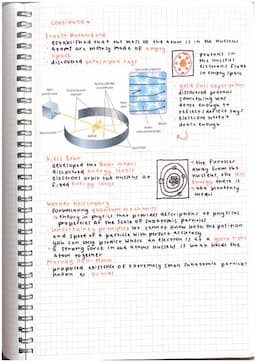 continued
Ernest Rutherford
established that the mass of the atom is in the nucleus
atoms are mostly made of empty
space
discovered beta+alpha rays
protons in
the nucleus
electrons float
in empty space
gold foil experiment
discovered protons
something was
dense enough to
reflect/deflect rays
electrons weren't
dense enough
Niels Bohr
developed the Bohr model
discovered energy levels
electrons orbit the nucleus at
fixed energy levels
the further
away from the
nucleus, the
energy there is
aka planetary
model
Werner Heisenberg
formulating quantum mechanics
theory in physics that provides description of physical
properties at the scale of subatomic particles
uncertainty principle: we cannot know both the position
and speed of a particle with perfect accuracy
you can only predict where an electron is at a given time
strong force in the atoms nucleus is what holds the
atom together
Murray Gell-Mann
proposed existence of extremely small subatomic particles
known as quarks